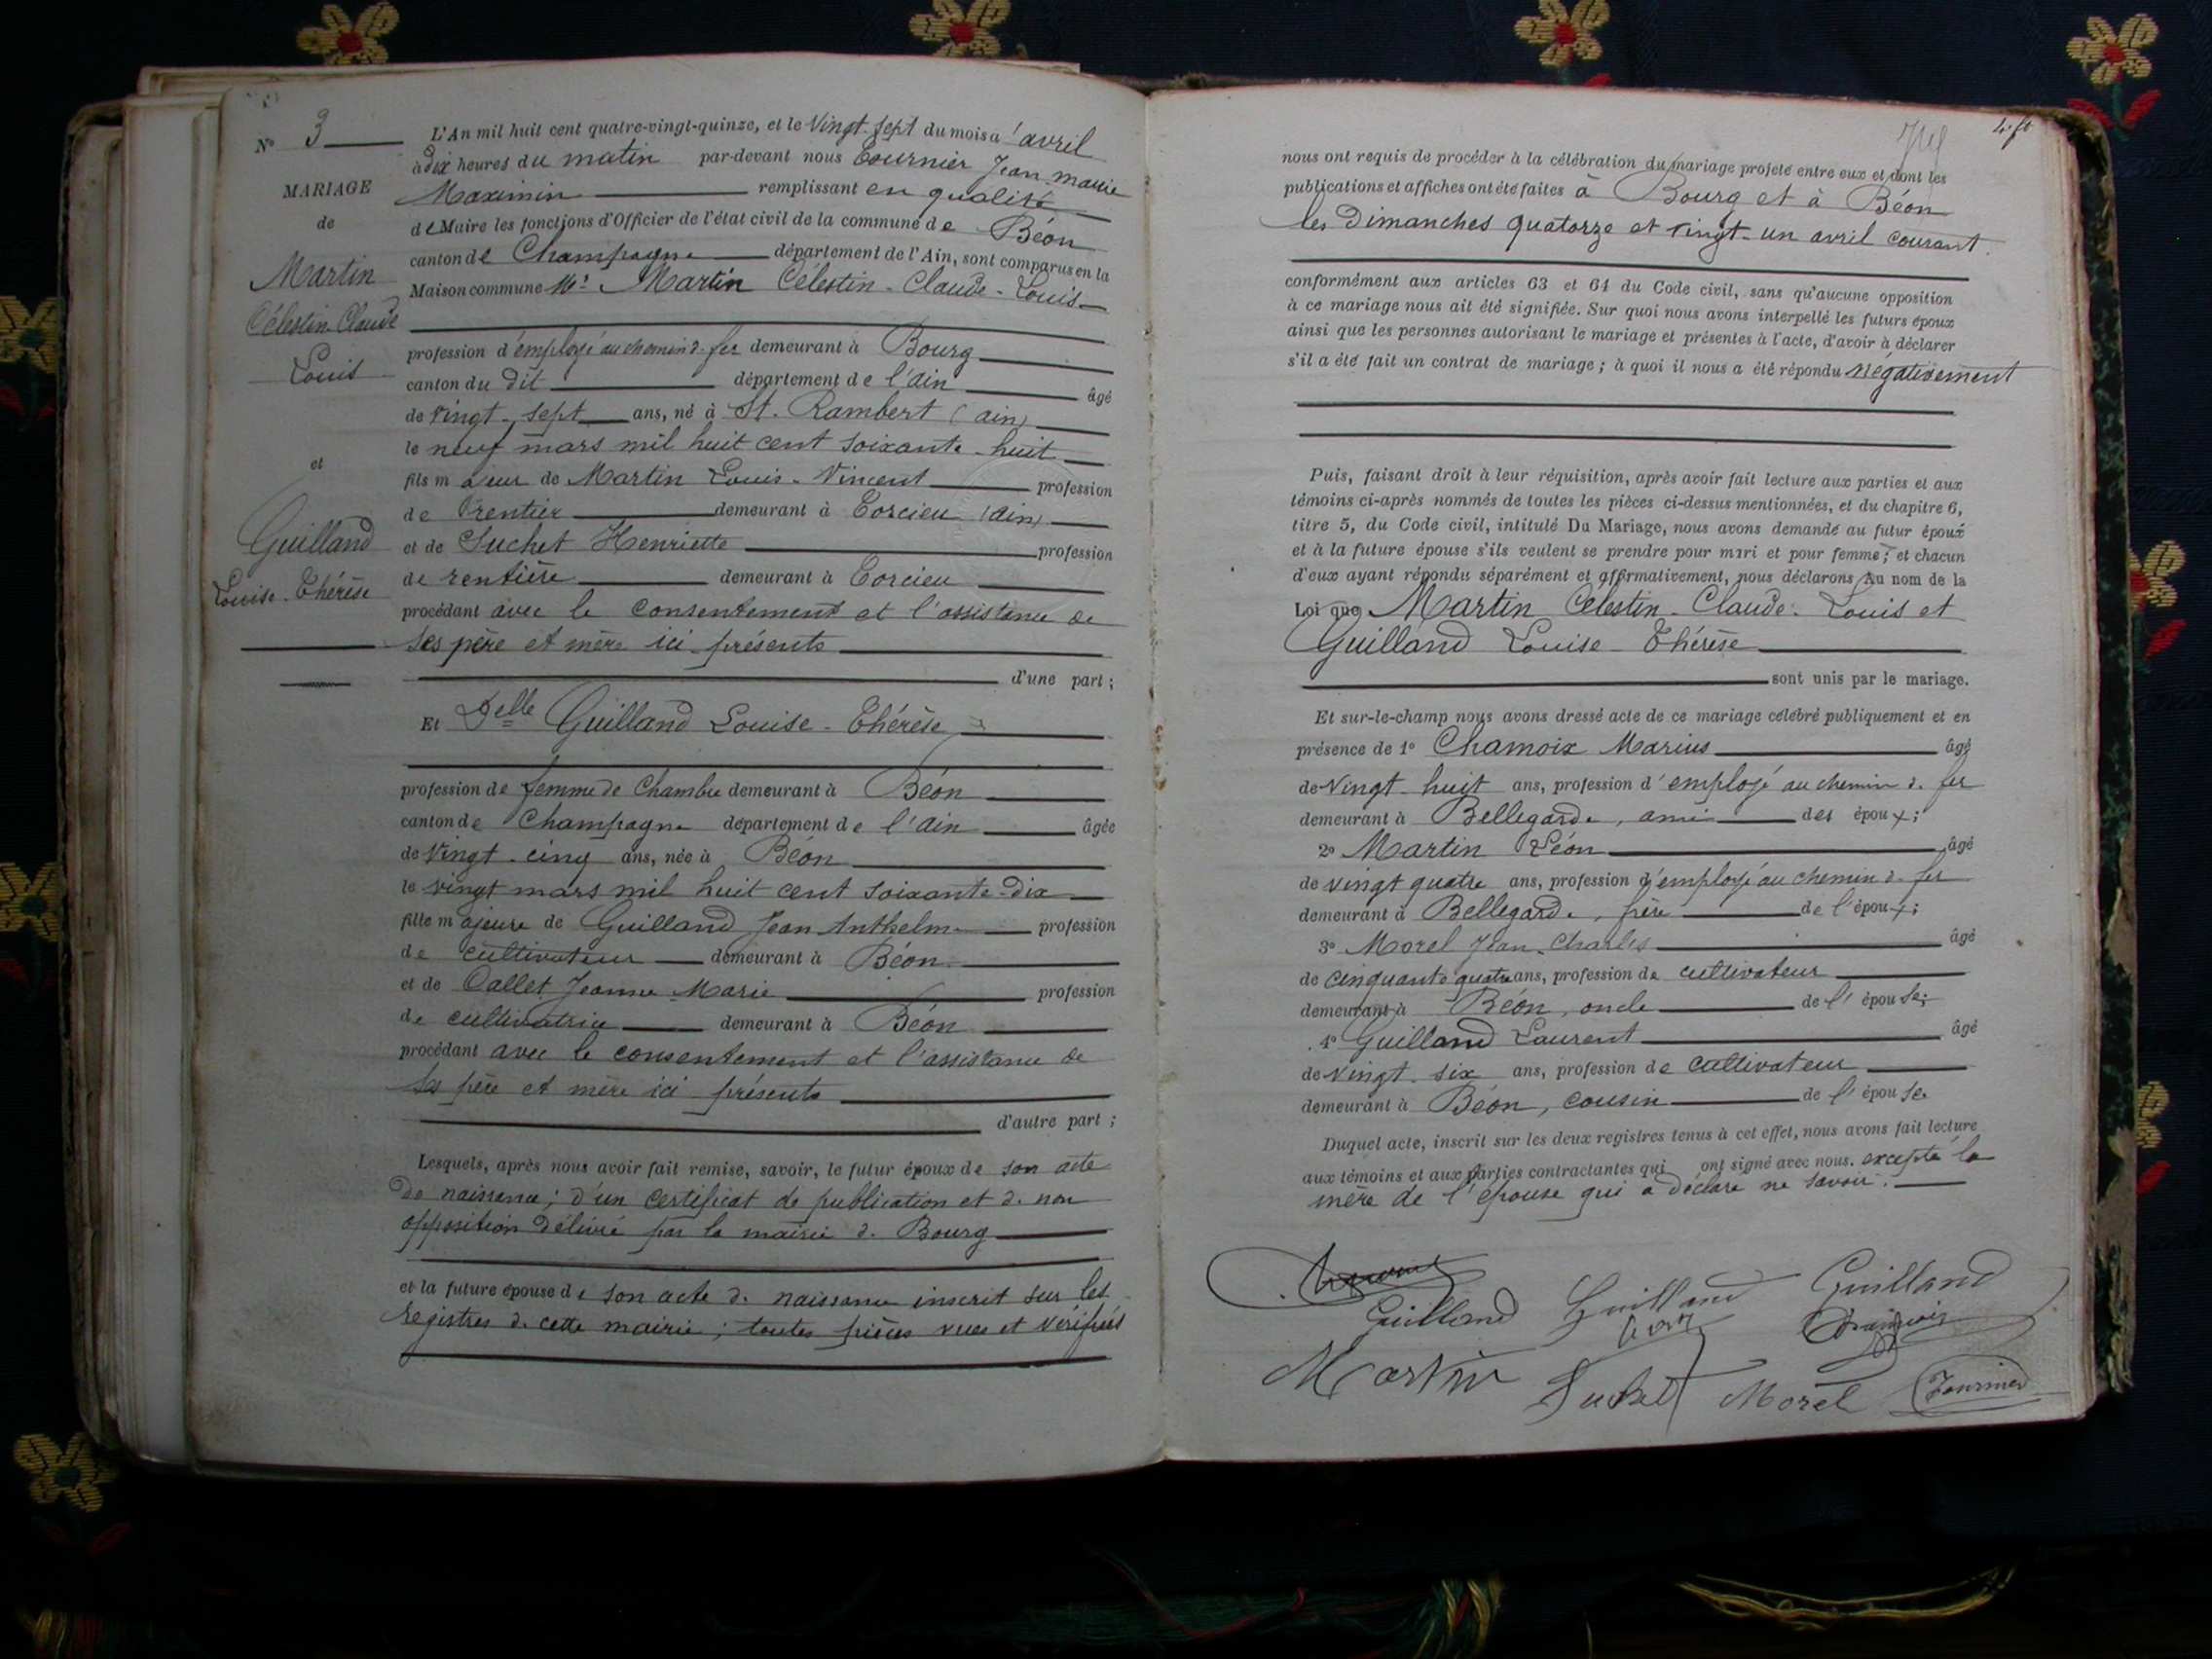 N° 3
MARIAGE
de
Martin
Célestin Claude
Louis
et
Guilland
Louise-Thérèse
L'An mil huit cent quatre-vingt-quinze, et le Vingt-sept du mois d'avril
à dix heures du matin par-devant nous Tournier Jean-Marie
Maximin remplissant en qualité
de Maire les fonctions d'Officier de l'état civil de la commune de Béon
canton de Champagne département de l'Ain, sont comparus en la
Maison commune Mr Martin Célestin-Claude-Louis
profession d'employé au chemin d. fer demeurant à Bourg
canton du dit département de l'ain âgé
de vingt-sept ans, né à St. Rambert (ain)
le neuf mars mil huit cent soixante-huit
fils majeur de Martin Louis-Vincent profession
de rentier demeurant à Torcieu (ain)
et de Suchet Henriette profession
de rentière demeurant à Torcieu
procédant avec le consentement et l'assistance de
ses père et mère ici présents
d'une part ;
Et Delle Guilland Louise-Thérèse
profession de femme de Chambre demeurant à Béon
canton de Champagne département de l'ain âgée
de vingt-cinq ans, née à Béon
le vingt mars mil huit cent soixante-dix
fille majeure de Guilland Jean Anthelme profession
de cultivateur demeurant à Béon
et de Callet Jeanne-Marie profession
de cultivatrice demeurant à Béon
procédant avec le consentement et l'assistance de
ses père et mère ici présents
d'autre part ;
Lesquels, après nous avoir fait remise, savoir, le futur époux de son acte
de naissance ; d'un certificat de publication et d. non
opposition délivré par la mairie d. Bourg
et la future épouse de son acte d. naissance inscrit sur les
registres d. cette mairie ; toutes pièces vues et vérifiées
nous ont requis de procéder à la célébration du mariage projeté entre eux et dont les
publications et affiches ont été faites à Bourg et à Béon
les Dimanches quatorze et vingt-un avril courant.
conformément aux articles 63 et 64 du Code civil, sans qu'aucune opposition
à ce mariage nous ait été signifiée. Sur quoi nous avons interpellé les futurs époux
ainsi que les personnes autorisant le mariage et présentes à l'acte, d'avoir à déclarer
s'il a été fait un contrat de mariage ; à quoi il nous a été répondu négativement
Puis, faisant droit à leur réquisition, après avoir fait lecture aux parties et aux
témoins ci-après nommés de toutes les pièces ci-dessus mentionnées, et du chapitre 6,
titre 5, du Code civil, intitulé Du Mariage, nous avons demandé au futur époux
et à la future épouse s'ils veulent se prendre pour mari et pour femme ; et chacun
d'eux ayant répondu séparément et affirmativement, nous déclarons Au nom de la
Loi que Martin Célestin-Claude-Louis et
Guilland Louise-Thérèse
sont unis par le mariage.
Et sur-le-champ nous avons dressé acte de ce mariage célébré publiquement et en
présence de 1° Chamoix Marius âgé
de Vingt-huit ans, profession d'employé au chemin d. fer
demeurant à Bellegarde, ami des époux ;
2° Martin Léon âgé
de vingt quatre ans, profession d'employé au chemin d. fer
demeurant à Bellegarde, frère de l'époux ;
3° Morel Jean-Charles âgé
de cinquante quatre ans, profession de cultivateur
demeurant à Béon, oncle de l'épouse ;
4° Guilland Laurent âgé
de vingt-six ans, profession de cultivateur
demeurant à Béon, cousin de l'épouse
Duquel acte, inscrit sur les deux registres tenus à cet effet, nous avons fait lecture
aux témoins et aux parties contractantes qui ont signé avec nous. excepté la
mère de l'épouse qui a déclaré ne savoir.
Guilland Guilland Guilland
Martin Suchet Morel Tournier